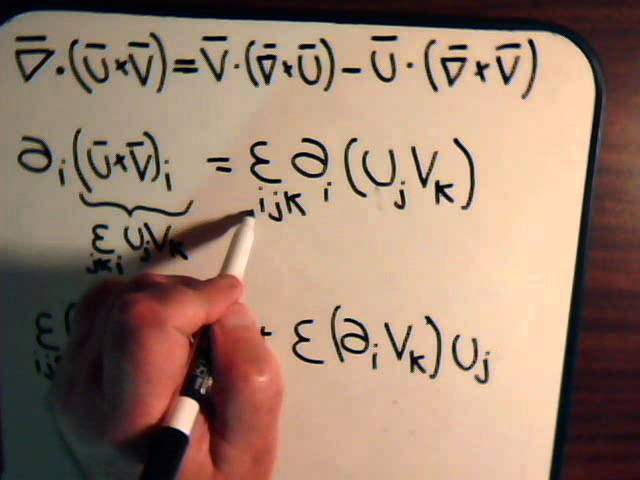 ∇̅·(U̅×V̅)=V̅·(∇̅×U̅)−U̅·(∇̅×V̅)
∂ᵢ(U̅×V̅)ᵢ = εᵢⱼₖ∂ᵢ(UⱼVₖ)
εⱼₖᵢUⱼVₖ
ε ε(∂ᵢVₖ)Uⱼ